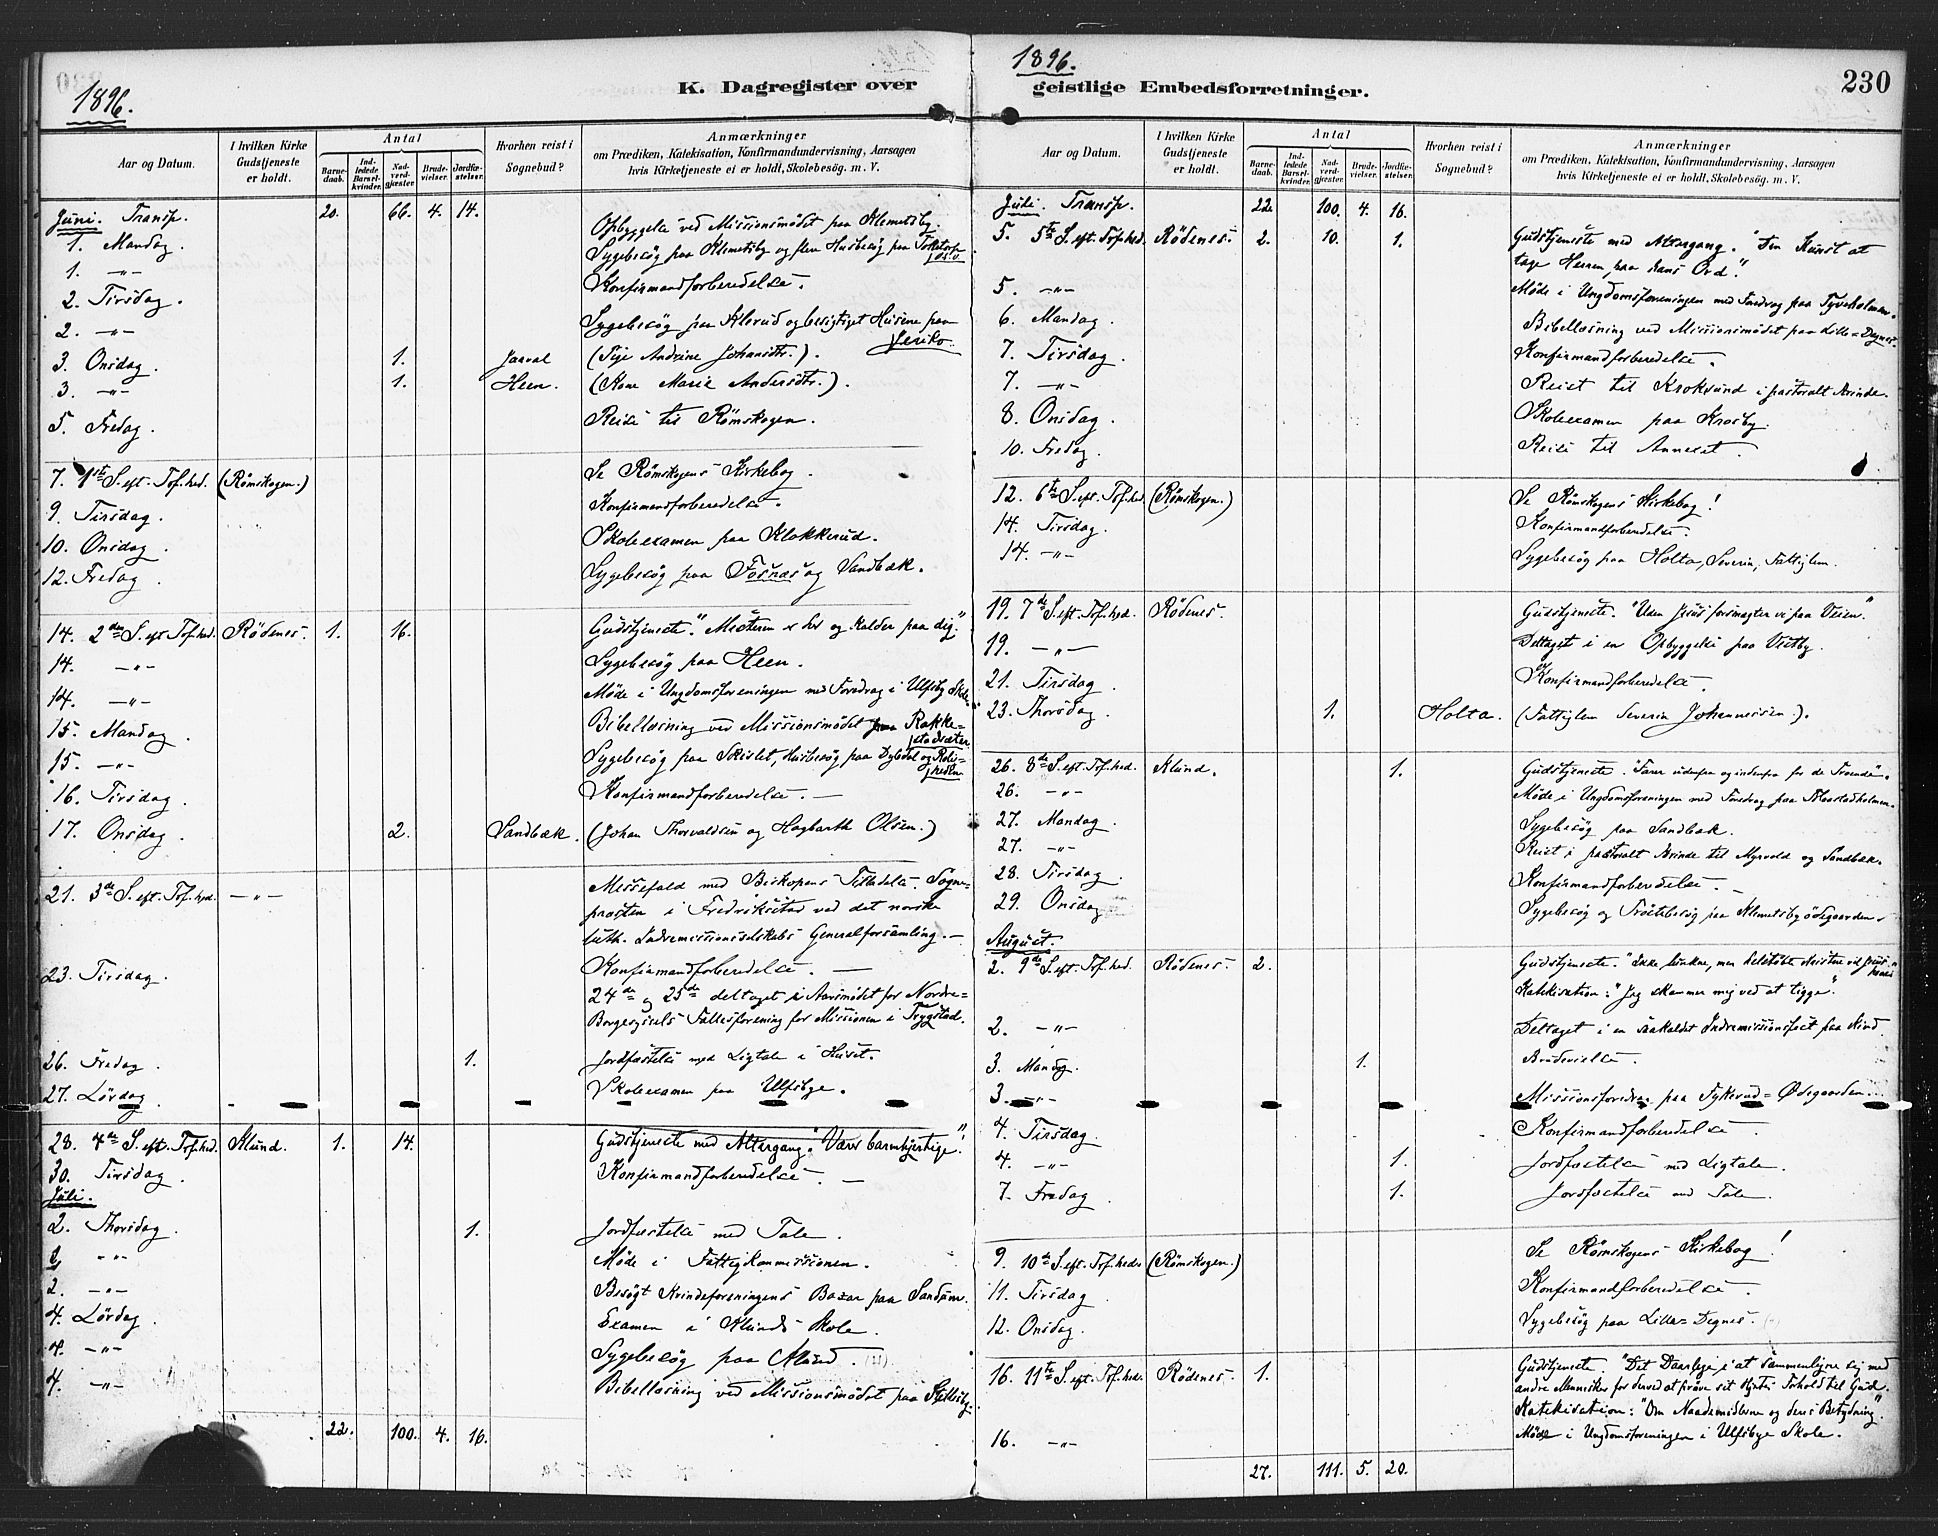 1896.
K. Dagregister over
Aar og Datum.
I hvilken Kirke Gudstjeneste er holdt.
Antal
Barnedaab.
Indledede Barselkvinder.
Nadverdgjæster.
Brudevielser.
Jordfæstelser.
Hvorhen reist i Sognebud?
Anmærkninger
om Prædiken, Katekisation, Konfirmandundervisning, Aarsagen
hvis Kirketjeneste ei er holdt, Skolebesøg. m. V.
Juni. Transp. 20. 66. 4. 14.
1. Mandag. Opbyggelse ved Missionsmödet paa Klemetsby.
1. -"- Sygebesög paa Klemetsby og flere Husbesög paa
2. Tirsdag. Konfirmandforberedelse.
2. -"- Sygebesög paa Klerud og besigtiget Husene paa Jeriko.
3. Onsdag. 1. Jaaval (Pige Andrine Johansdtr.).
3. -"- 1. Heen. (Kone Marie Andersdtr.).
5. Fredag. Reise til Römskogen.
7. 1ste S. eft. Tref.hed. (Römskogen.) Se Römskogens Kirkebog.
9. Tirsdag. Konfirmandforberedelse.
10. Onsdag. Skoleexamen paa Klokkerud.
12. Fredag. Sygebesög paa Fosnæs og Sandbæk.
14. 2den S. eft. Tref.hed. Rödenes. 1. 16. Gudstjeneste. "Mesteren er her og kalder paa dig."
14. -"- Sygebesög paa Heen.
14. -"- Möde i Ungdomsforeningen med Foredrag i Ulfsby Skole.
15. Mandag. Bibellæsning ved Missionsmödet paa Rakkestadsæter.
15. -"- Sygebesög paa Husbesög paa og
16. Tirsdag. Konfirmandforberedelse. —
17. Onsdag. 2. Sandbæk. (Johan Thorvaldsen og Hagbarth Olsen.)
21. 3die S. eft. Tref.hed. -"- Messefald med Biskopens Tilladelse. Sogne-
præsten i Fredriksstad ved det norske
luth. Indremissionsselskabs Generalforsamling. —
23. Tirsdag. Konfirmandforberedelse. —
24de og 25de deltaget i Aarsmödet for Nordre-
Borgesyssels Fællesforening for Missionen i Trygstad.
26. Fredag. 1. Jordfæstelse med Ligtale i Huset.
27. Lördag. Skoleexamen paa Ulfsbye.
28. 4de S. eft. Tref.hed. Klund. 1. 14. Gudstjeneste med Altergang. "Vær barmhjertige".
30. Tirsdag. Konfirmandforberedelse. —
Juli.
2. Thorsdag. 1. Jordfæstelse med Tale.
2. -"- Möde i Fattigkommissionen.
2. -"- Besögt Kvindeforeningens Bazar paa
4. Lördag. Examen i Klunds Skole.
4. -"- Sygebesög paa Klund.
4. -"- Bibellæsning ved Missionsmödet paa
22. 100. 4. 16.
1896.
geistlige Embedsforretninger.
230
Aar og Datum.
I hvilken Kirke Gudstjeneste er holdt.
Antal
Barnedaab.
Indledede Barselkvinder.
Nadverdgjæster.
Brudevielser.
Jordfæstelser.
Hvorhen reist i Sognebud?
Anmærkninger
om Prædiken, Katekisation, Konfirmandundervisning, Aarsagen
hvis Kirketjeneste ei er holdt, Skolebesøg. m. V.
Juli. Transp. 22. 100. 4. 16.
5. 5te S. eft. Tref.hed. Rödenes. 2. 10. 1. Gudstjeneste med Altergang. "Den Kunst at
tage Herren paa hans Ord."
5. -"- Möde i Ungdomsforeningen med Foredrag paa Tyveholmen.
6. Mandag. Bibellæsning ved Missionsmödet paa Lille=Degnes.
7. Tirsdag. Konfirmandforberedelse.
7. -"- Reist til Kroksund i pastoralt Ærinde.
8. Onsdag. Skoleexamen paa Krosby.
10. Fredag. Reise til Annexet.
12. 6te S. eft. Tref.hed. (Römskogen.) Se Römskogens Kirkebog!
14. Tirsdag. Konfirmandforberedelse.
14. -"- Sygebesög paa Holta, Severin, Fattiglem.
19. 7de S. eft. Tref.hed. Rödenes. Gudstjeneste. "Uden Jesus forsmægter vi paa Veien."
19. -"- Deltaget i en Opbyggelse paa Vestby.
21. Tirsdag. Konfirmandforberedelse.
23. Thorsdag. 1. Holta. (Fattiglem Severin Johannesen.).
26. 8de S. eft. Tref.hed. Klund. 1. Gudstjeneste. "Farer udenfra og indenfra for de Troende".
26. -"- Möde i Ungdomsforeningen med Foredrag paa
27. Mandag. Sygebesög paa Sandbæk.
27. -"- Reist i pastoralt Ærinde til Myrvold og Sandbæk.
28. Tirsdag. Konfirmandforberedelse. —
29. Onsdag Sygebesög og Tröstebesög paa Klemetsbyödegaarden.
August.
2. 9de S. eft. Tref.hed. Rödenes. 2. Gudstjeneste. "Ikke men helstöbte Kristne vil Jesus have"
Katekisation: "Jeg skammer mig ved at tigge".
2. -"- Deltaget i en saakaldet Indremissionsfest paa
3. Mandag. 1. Brudevielse.
3. -"- Missionsforedrag paa Fykerud=Ødegaarden.
4. Tirsdag. Konfirmandforberedelse.
4. -"- 1. Jordfæstelse med Ligtale.
7. Fredag. 1. Jordfæstelse med Tale.
9. 10de S. eft. Tref.hed. (Römskogen.) Se Römskogens Kirkebog!
11. Tirsdag. Konfirmandforberedelse.
12. Onsdag. Sygebesög paa Lille=Degnes.
16. 11te S. eft. Tref.hed. Rödenes. 1. Gudstjeneste. "Det Daarlige i at sammenligne sig med
andre Mennesker for derved at pröve sit Hjertes Forhold til Gud.
Katekisation: "Om Naademidlerne og deres Betydning".
16. -"- Möde i Ungdomsforeningen i Ulfsbye Skole.
27. 111. 5. 20.